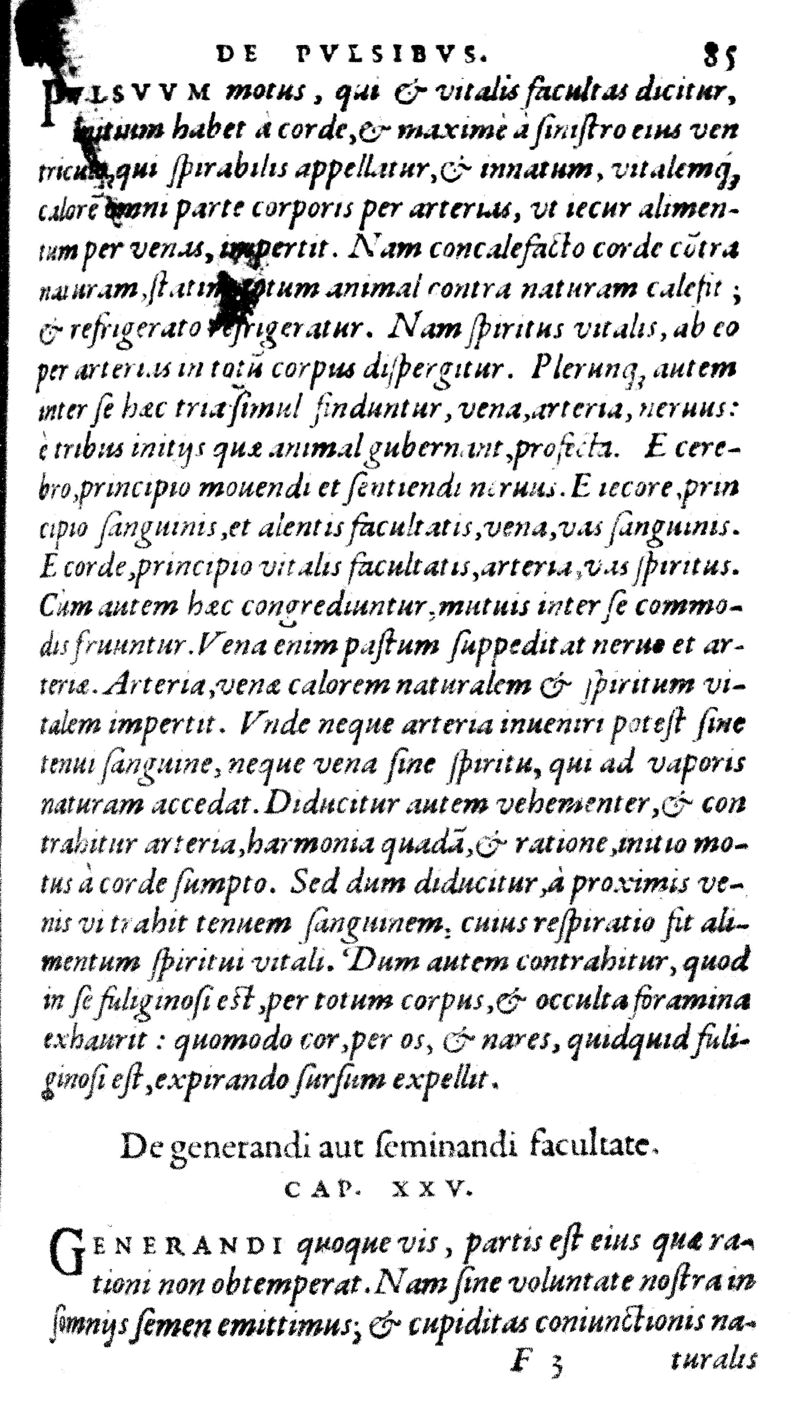 DE PVLSIBVS. 85
PVLSVVM motus, qui & vitalis facultas dicitur,
initium habet à corde,& maximè à sinistro eius ven
triculo,qui spirabilis appellatur,& innatum, vitalemq́;
calorē omni parte corporis per arterias, vt iecur alimen-
tum per venas, impertit. Nam concalefacto corde cōtra
naturam,statim totum animal contra naturam calefit ;
& refrigerato refrigeratur. Nam spiritus vitalis, ab eo
per arterias in totū corpus dispergitur. Plerunq; autem
inter se hæc tria simul finduntur, vena,arteria, neruus:
è tribus initijs quæ animal gubernant,profecta. E cere-
bro,principio mouendi et sentiendi neruus. E iecore,prin
cipio sanguinis,et alentis facultatis,vena,vas sanguinis.
E corde,principio vitalis facultatis,arteria,vas spiritus.
Cùm autem hæc congrediuntur,mutuis inter se commo-
dis fruuntur. Vena enim pastum suppeditat neruo et ar-
teriæ. Arteria,venæ calorem naturalem & spiritum vi-
talem impertit. Vnde neque arteria inueniri potest sine
tenui sanguine, neque vena sine spiritu, qui ad vaporis
naturam accedat. Diducitur autem vehementer,& con
trahitur arteria,harmonia quadā,& ratione,initio mo-
tus à corde sumpto. Sed dum diducitur,à proximis ve-
nis vi trahit tenuem sanguinem, cuius respiratio fit ali-
mentum spiritui vitali. Dum autem contrahitur, quod
in se fuliginosi est,per totum corpus,& occulta foramina
exhaurit : quomodo cor,per os, & nares, quidquid fuli-
ginosi est,expirando sursum expellit.
De generandi aut seminandi facultate.
CAP. XXV.
GENERANDI quoque vis, partis est eius quæ ra-
tioni non obtemperat. Nam sine voluntate nostra in
somnijs semen emittimus; & cupiditas coniunctionis na-
F 3 turalis